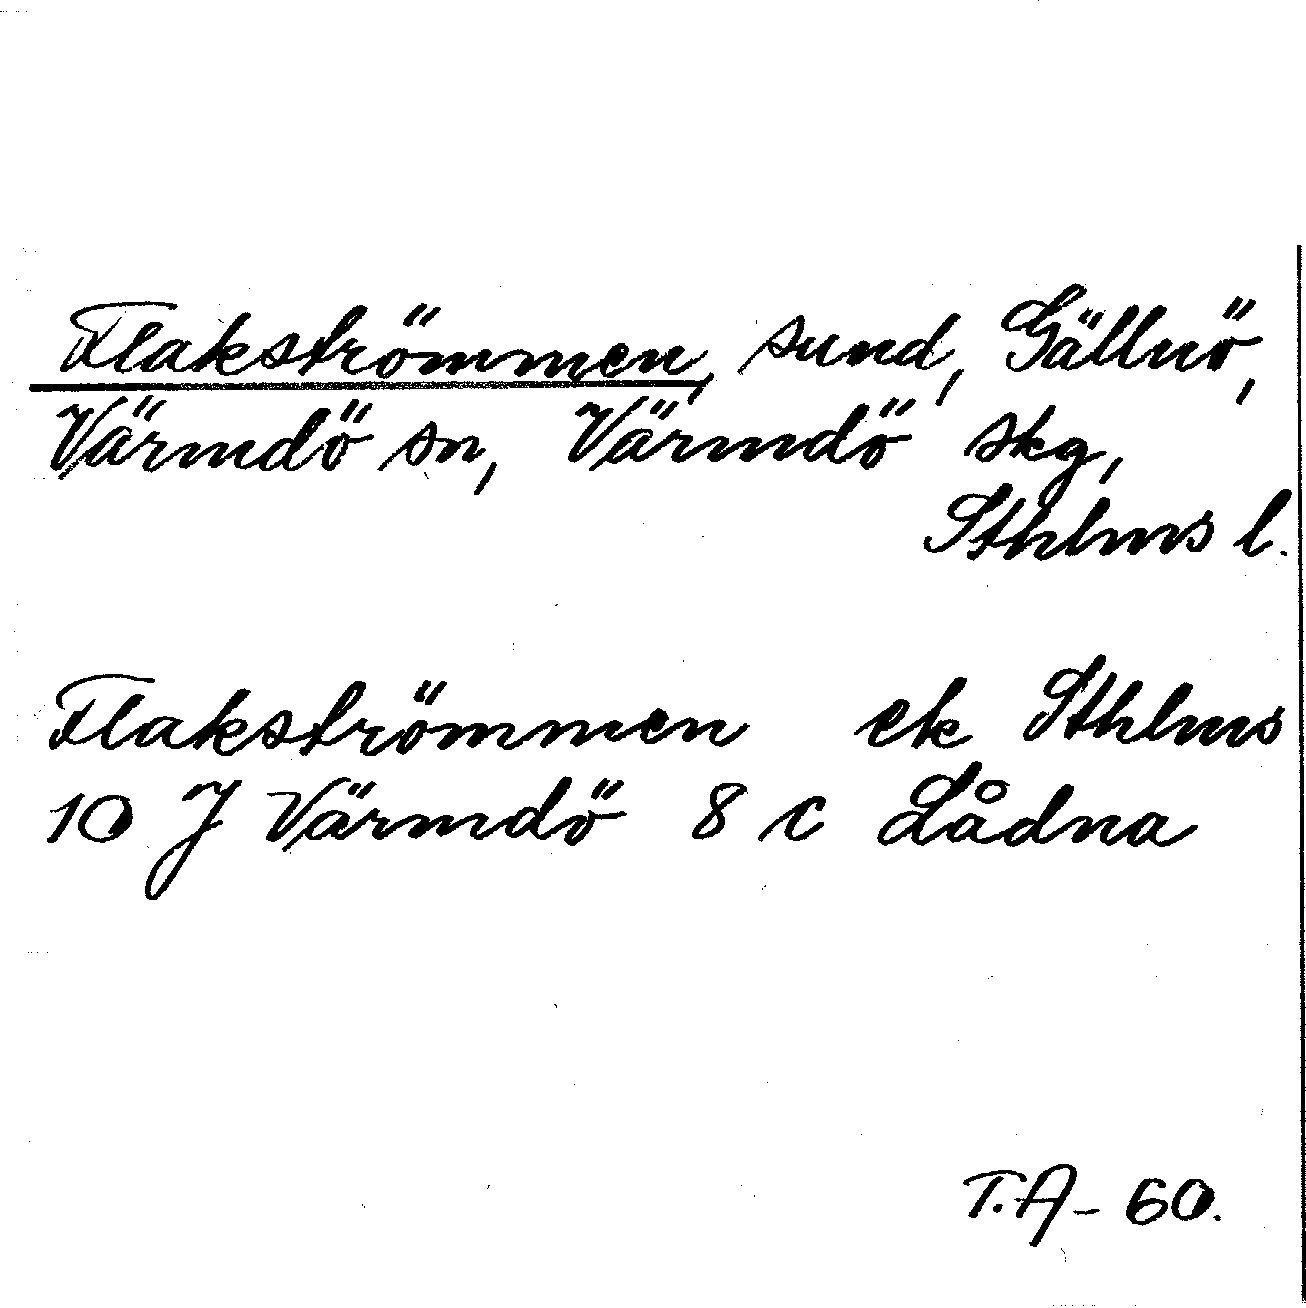 Flakströmmen, sund, Gällnö,
Värmdö sn, Värmdö skg,
Sthlms l.
Flakströmmen ek Sthlms
10 J Värmdö 8 c Lådna
T.A - 60.